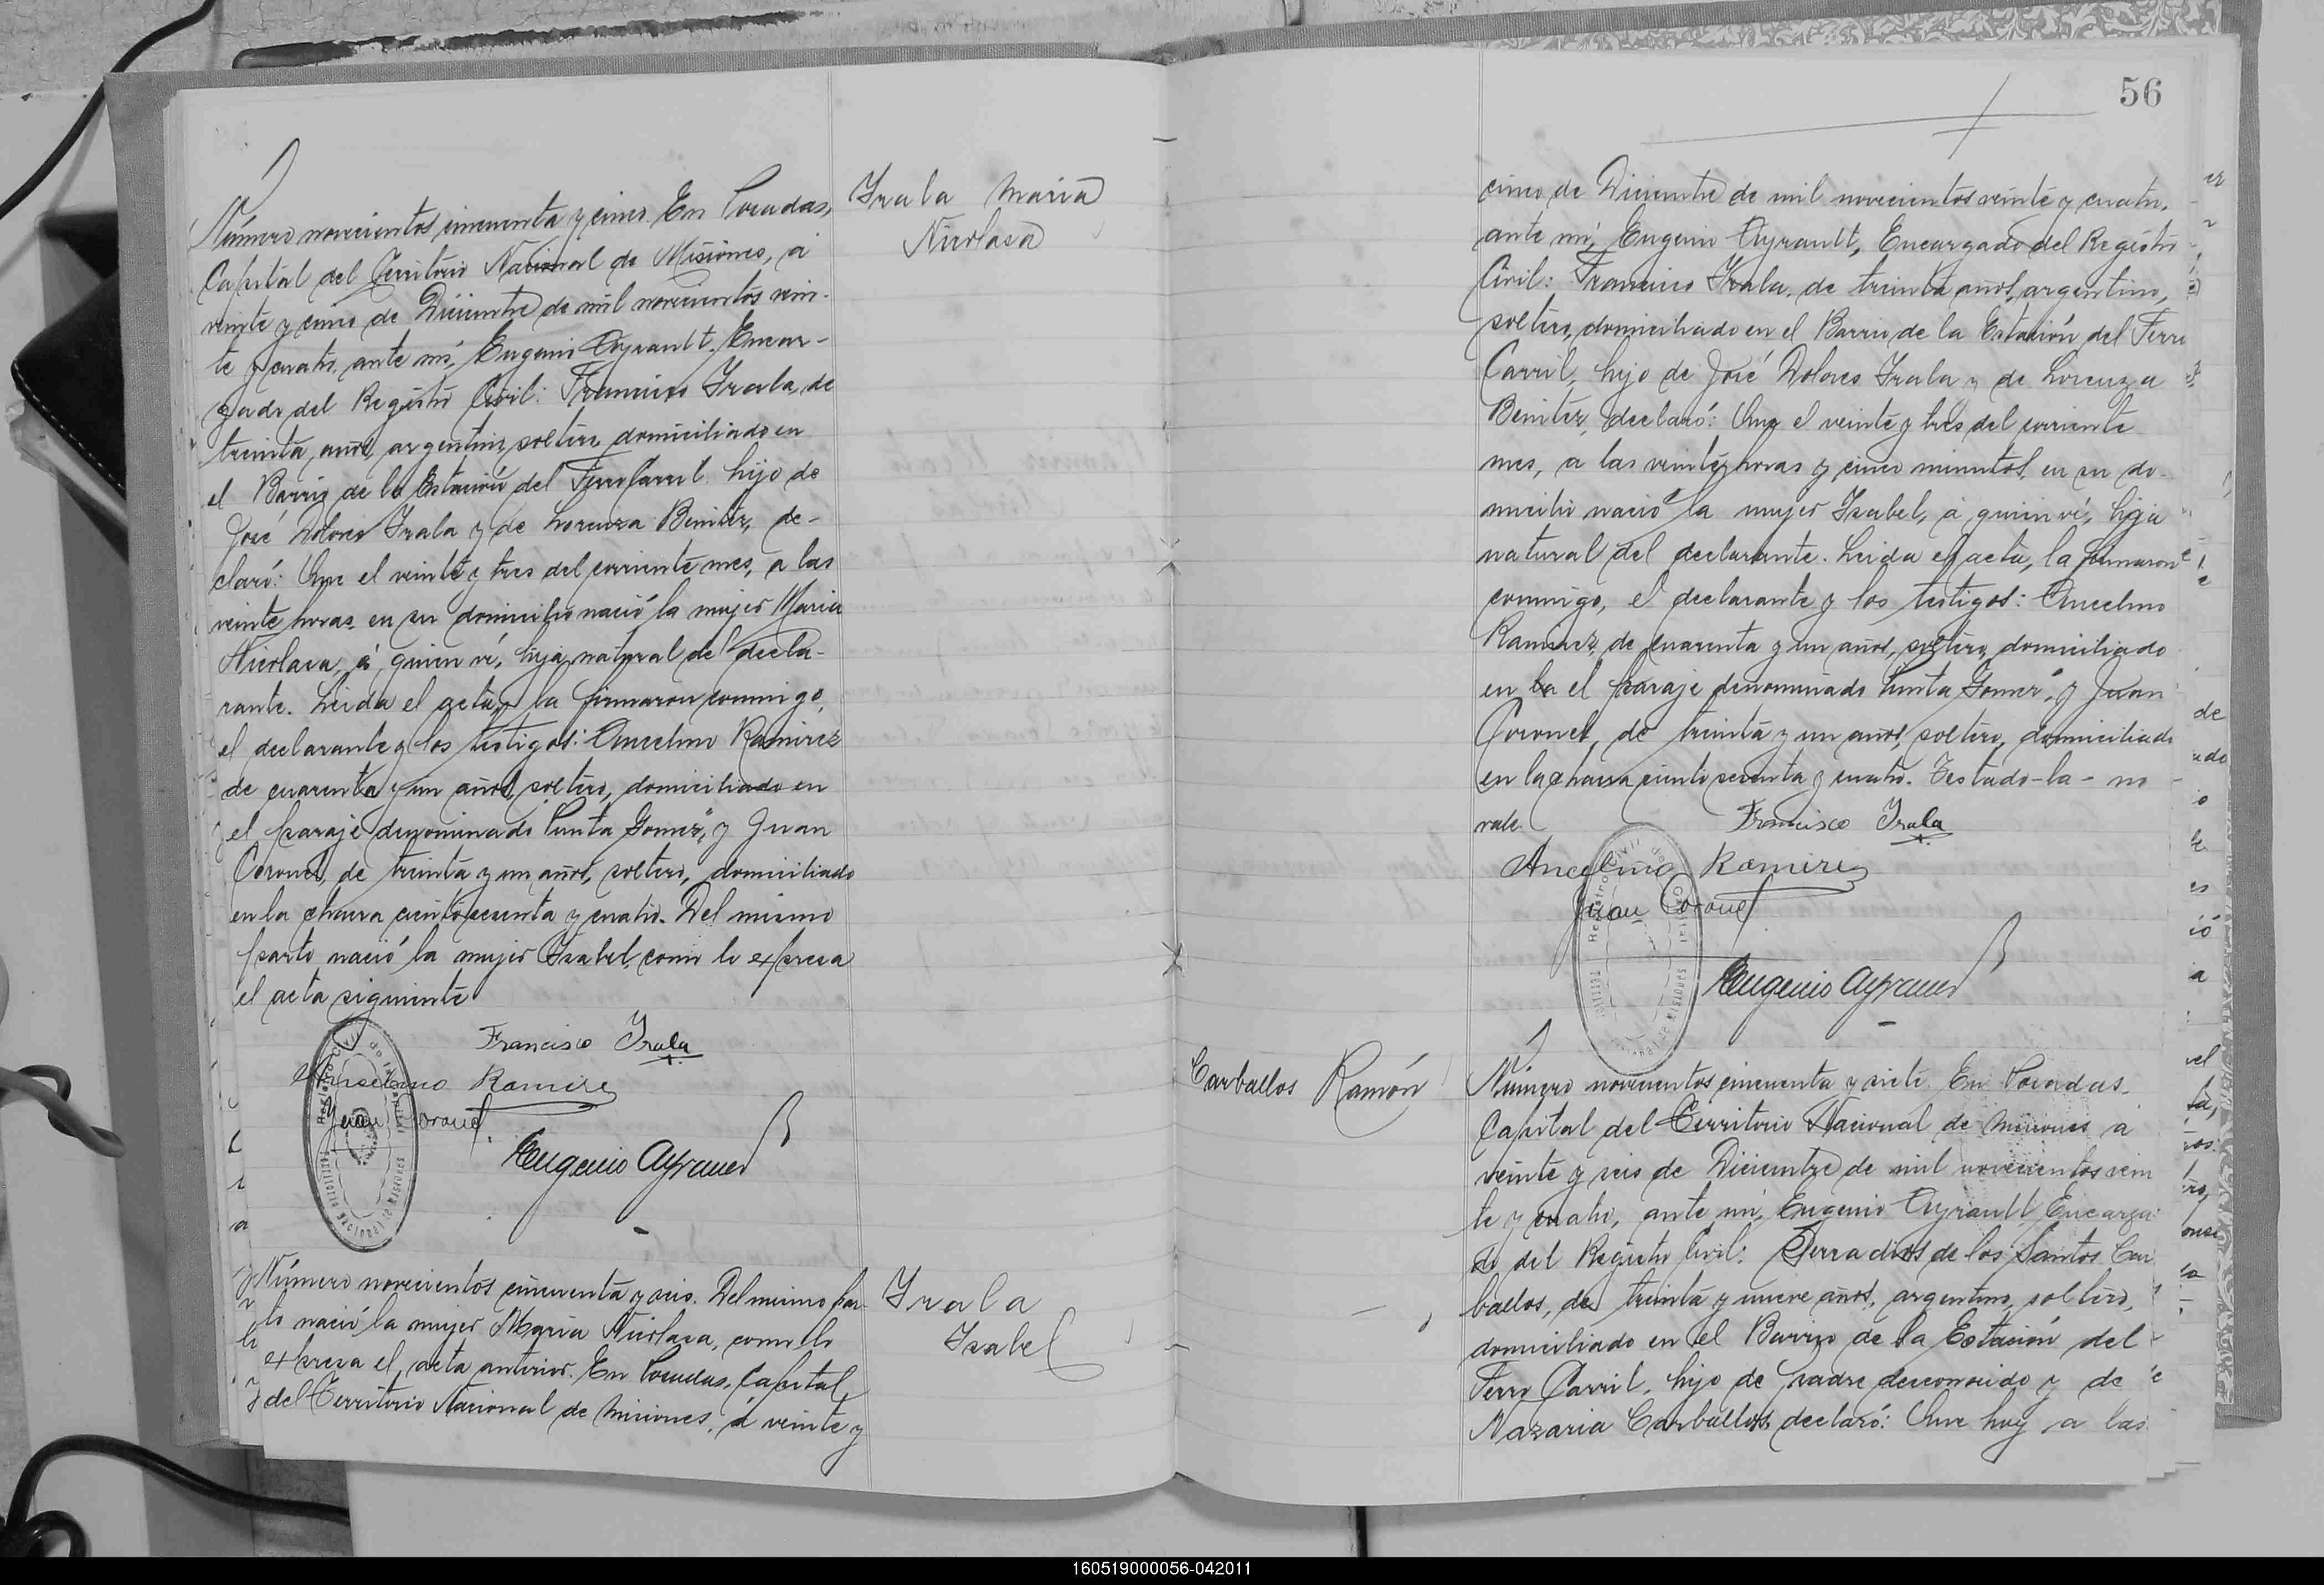 Número novecientos cincuenta y cinco. En Posadas,
Capital del Territorio Nacional de Misiones, á
veinte y cinco de Diciembre de mil novecientos vein-
te y cuatro, ante mí, Eugenio Ayrault, Encar-
gado del Registro Civil: Francisco Irala, de
treinta años, argentino, soltero, domiciliado en
el Barrio de la Estación del Ferro Carril, hijo de
José Dolores Irala y de Lorenza Benitez, de-
claró: Que el veinte y tres del corriente mes, a las
veinte horas, en su domicilio nació la mujer Maria
Nicolasa, á quien ví, hija natural del decla-
rante. Leida el acta, la firmaron conmigo,
el declarante y los testigos: Anselmo Ramirez
de cuarenta y un años, soltero, domiciliado en
el paraje denominado "Punta Gomez", y Juan
Coronel, de treinta y un años, soltero, domiciliado
en la chacra ciento sesenta y cuatro. Del mismo
parto nació la mujer Isabel, como lo expresa
el acta siguiente
Francisco Irala
Anselmo Ramirez
Juan Coronel
Eugenio Ayrault
Irala Maria
Nicolasa
Número novecientos cincuenta y seis. Del mismo par-
to nació la mujer María Nicolasa, como lo
expresa el acta anterior. En Posadas, Capital
del Territorio Nacional de Misiones, á veinte y
Irala
Isabel
56
cinco de Diciembre de mil novecientos veinte y cuatro,
ante mí, Eugenio Ayrault, Encargado del Registro
Civil: Francisco Irala, de treinta años, argentino,
soltero, domiciliado en el Barrio de la Estación del Ferro
Carril, hijo de José Dolores Irala y de Lorenza
Benitez, declaró: Que el veinte y tres del corriente
mes, a las veinte horas y cinco minutos, en su do-
micilio nació la mujer Isabel, á quien ví, hija
natural del declarante. Leida el acta, la firmaron
conmigo, el declarante y los testigos: Anselmo
Ramirez, de cuarenta y un años, soltero, domiciliado
en la el paraje denominado "Punta Gomez", y Juan
Coronel, de treinta y un años, soltero, domiciliado
en la chacra ciento sesenta y cuatro. Testado-la-no
vale.
Francisco Irala
Ancelmo Ramirez
Juan Coronel
Eugenio Ayrault
Carballos Ramón
Número novecientos cincuenta y siete. En Posadas,
Capital del Territorio Nacional de Misiones á
veinte y seis de Diciembre de mil novecientos vein
te y cuatro, ante mí, Eugenio Ayrault, Encarga-
do del Registro Civil: de los Santos Car
ballos, de treinta y nueve años, argentino, soltero,
domiciliado en el Barrio de la Estación del
Ferro Carril, hijo de padre desconocido y de
Nazaria Carballos, declaró: Que hoy a las
160519000056-042011